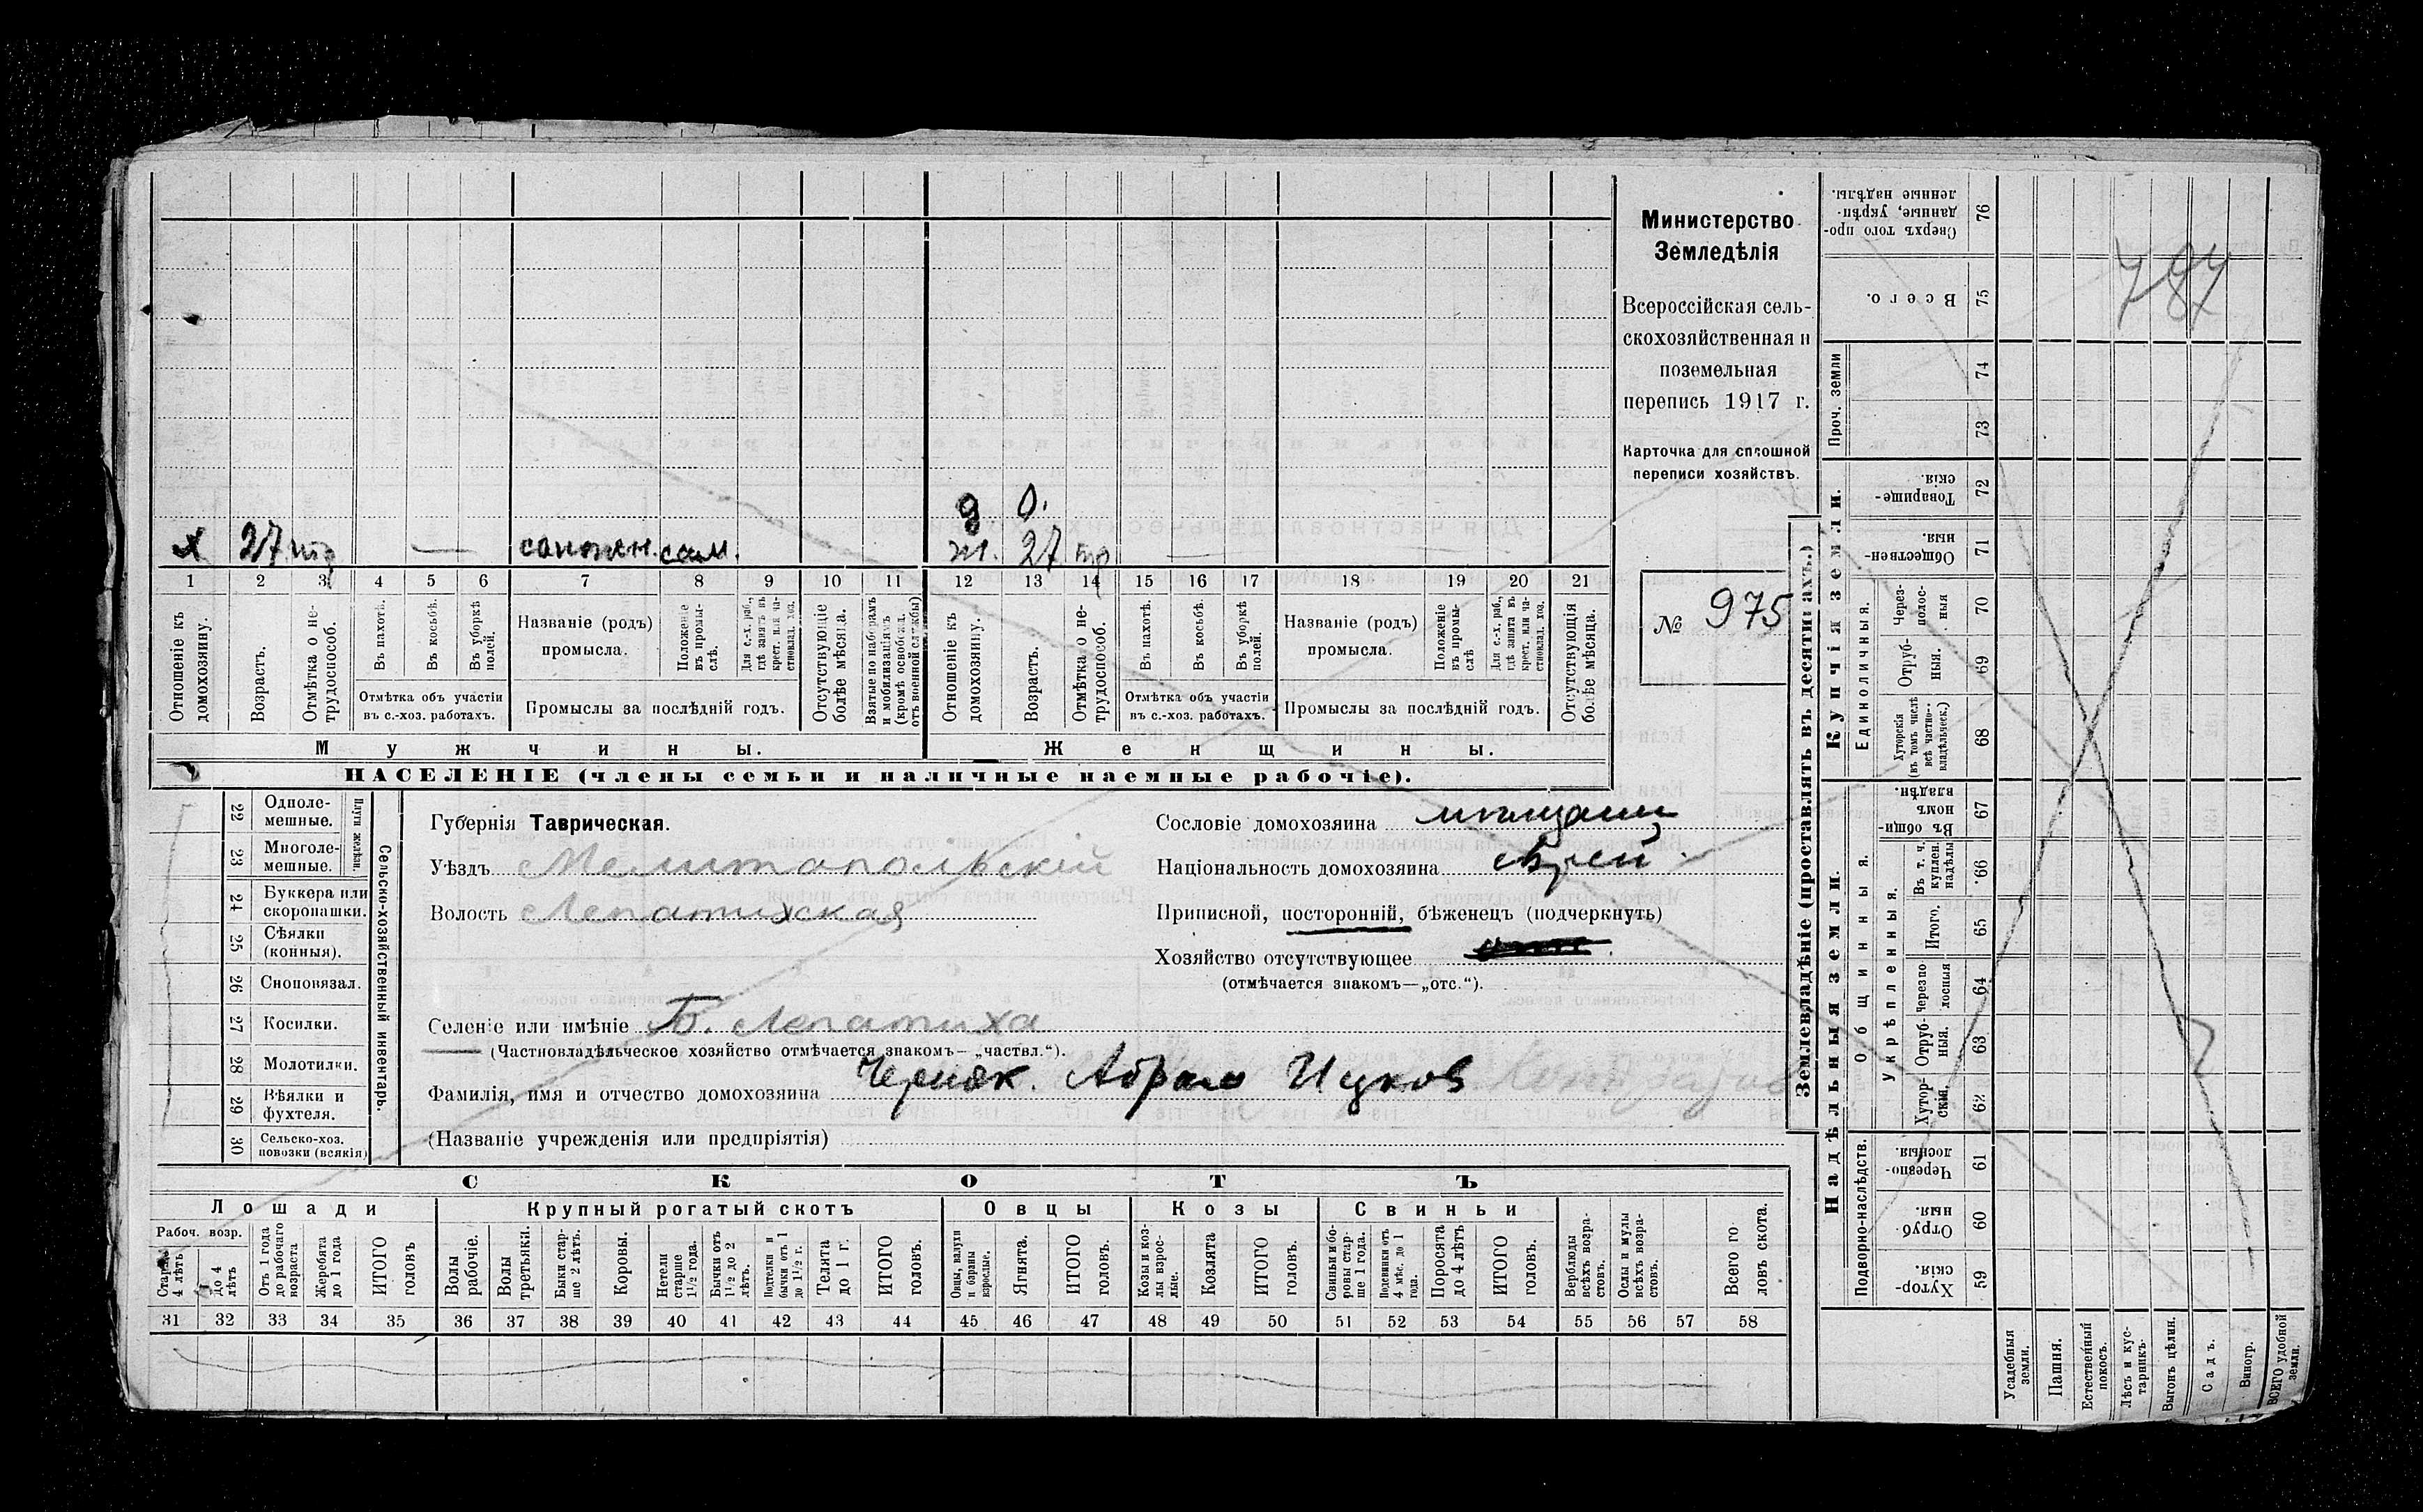 Министерство
Земледѣлія
Всероссійская сель-
скохозяйственная и
поземельная
перепись 1917 г.
Карточка для сплошной
переписи хозяйствъ.
№ 975
787
д 0.
х 27 тр — сапожн. сам. ж. 27 тр —
1 2 3 4 5 6 7 8 9 10 11 12 13 14 15 16 17 18 19 20 21
Отношеніе къ домохозяину.
Возрастъ.
Отмѣтка о не-трудоспособ.
Въ пахотѣ.
Въ косьбѣ.
Въ уборкѣ полей.
Отмѣтка объ участіи
въ с.-хоз. работахъ.
Названіе (родъ)
промысла.
Положеніе въ промы-слѣ.
Для с.-х. раб., гдѣ занятъ въ крест. или ча-стновлад. хоз.
Промыслы за послѣдній годъ.
Отсутствующіе болѣе мѣсяца.
Взятые по наборамъ и мобилизаціямъ (кромѣ освобожд. отъ военной службы)
Отношеніе къ домохозяину.
Возрастъ.
Отмѣтка о не-трудоспособ.
Въ пахотѣ.
Въ косьбѣ.
Въ уборкѣ полей.
Отмѣтка объ участіи
въ с.-хоз. работахъ.
Названіе (родъ)
промысла.
Положеніе въ промы-слѣ
Для с.-х. раб., гдѣ занята въ крест. или ча-стновлад. хоз.
Промыслы за послѣдній годъ.
Отсутствующія болѣе мѣсяца.
Мужчины.
Женщины.
НАСЕЛЕНІЕ (члены семьи и наличные наемные рабочіе).
22 Одноле-мешные.
23 Многоле-мешные.
Плуги желѣзн.
24 Буккера или скоропашки.
25 Сѣялки (конныя).
26 Сноповязал.
27 Косилки.
28 Молотилки.
29 Вѣялки и фухтеля.
30 Сельско-хоз. повозки (всякія)
Сельско-хозяйственный инвентарь.
Губернія Таврическая.
Уѣздъ Мелитопольскій
Волость Лепатихская
Сословіе домохозяина мѣщани
Національность домохозяина еврей
Приписной, посторонній, бѣженецъ (подчеркнуть)
Хозяйство отсутствующее
(отмѣчается знакомъ—„отс.“).
Селеніе или имѣніе Б. Лепатиха
(Частновладѣльческое хозяйство отмѣчается знакомъ—„частвл.“).
Фамилія, имя и отчество домохозяина Черняк. Абрам Ицков
(Названіе учрежденія или предпріятія)
СКОТЪ
Лошади
Крупный рогатый скотъ
Овцы
Козы
Свиньи
Рабоч. возр.
Старше 4 лѣтъ
до 4 лѣтъ
Отъ 1 года до рабочаго возраста
Жеребята до 1 года
ИТОГО головъ
Волы рабочіе.
Волы третьяки.
Быки стар-ше 2 лѣтъ.
Коровы.
Нетели старше 1½ года.
Бычки отъ 1½ до 2 лѣтъ.
Подтелки и бычки отъ 1 до 1½ г.
Телята до 1 г.
ИТОГО головъ.
Овцы, валухи и бараны взрослые.
Ягнята.
ИТОГО головъ.
Козы и коз-лы взрос-лые.
Козлята
ИТОГО головъ.
Свиньи и бо-ровы стар-ше 1 года.
Подсвинки отъ 4 мѣс. до 1 года.
Поросята до 4 лѣтъ
ИТОГО головъ.
Верблюды всѣхъ возра-стовъ.
Ослы и мулы всѣхъ возра-стовъ.
Всего го-ловъ скота.
31 32 33 34 35 36 37 38 39 40 41 42 43 44 45 46 47 48 49 50 51 52 53 54 55 56 57 58
Землевладѣніе (проставлять въ десятинахъ.)
Надѣльныя земли.
Купчія земли.
Проч. земли
Подворно-наслѣдств.
Общинныя.
Укрѣпленныя.
Единоличныя.
Сверхъ того про-данные, укрѣп-ленные надѣлы. 76
Всего. 75
74
73
Товарище-скія. 72
Обществен-ныя. 71
Через-полос-ныя 70
Отруб-ныя. 69
Хуторскія (въ томъ числѣ всѣ частно-владѣльческ.) 68
Въ общи-номъ владѣн. 67
Въ т. ч. куплен. надѣлы 66
Итого. 65
Черезпо-лосныя 64
Отруб-ныя. 63
Хутор-скія. 62
Черезпо-лосныя 61
Отруб-ныя. 60
Хутор-скія. 59
Усадебныя земли.
Пашня.
Естественный покосъ.
Лѣсъ и кус-тарникъ.
Выгонъ цѣлин.
Садъ.
Виногр.
ВСЕГО удобной земли.